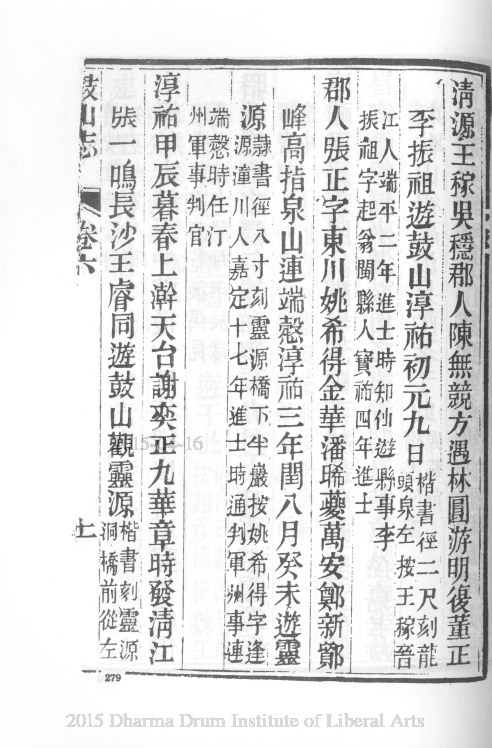 清源王稼吳穩郡人陳無競方遇林圓游明復董正
李振祖遊鼓山淳祐初元九日
楷書徑二尺刻龍
頭泉左按王稼晉
江人端平二年進士時知仙遊縣事李
振祖字起翁閩縣人寶祐四年進士
郡人張正字東川姚希得金華潘 萬安鄭新鄭
峰高指泉山連端愨淳祐三年閏八月癸未遊靈
源
隸書徑八寸刻靈源橋下坐巖按姚希得字逢
源潼川人嘉定十七年進士時通判軍州事連
端愨時任汀
州軍事判官
淳祐甲辰暮春上澣天台謝奕正九華章時發淸江
張一鳴長沙王睿同遊鼓山觀靈源
楷書刻靈源
洞橋前從左
鼓山志
卷六
279
2015 Dharma Drum Institute of Liberal Arts